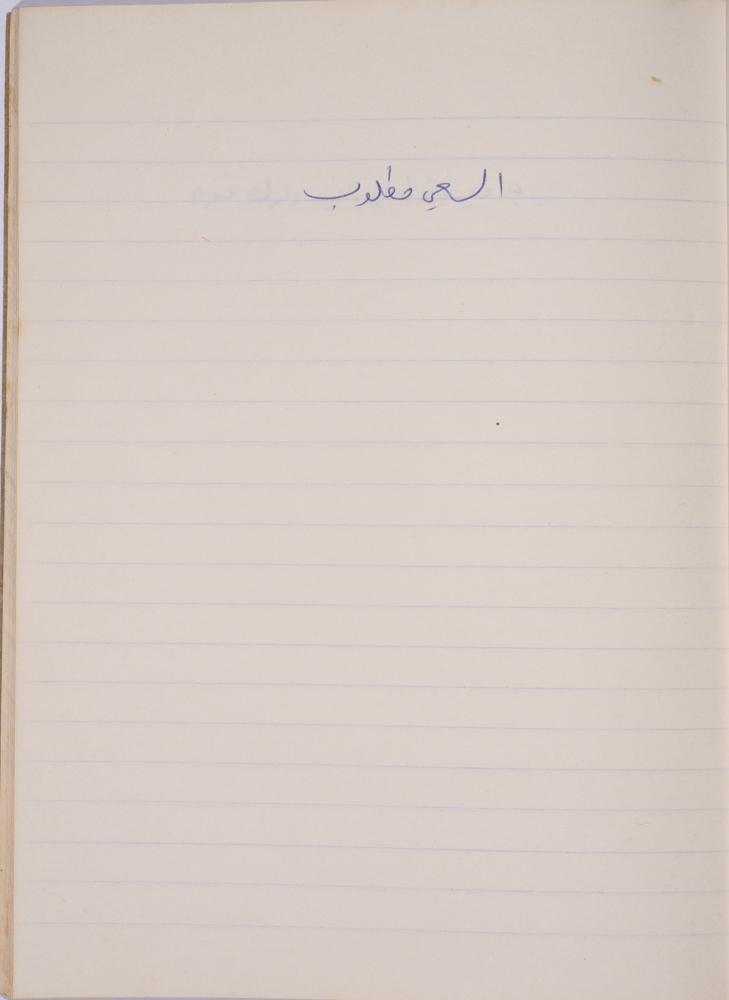 السعي مطلوب